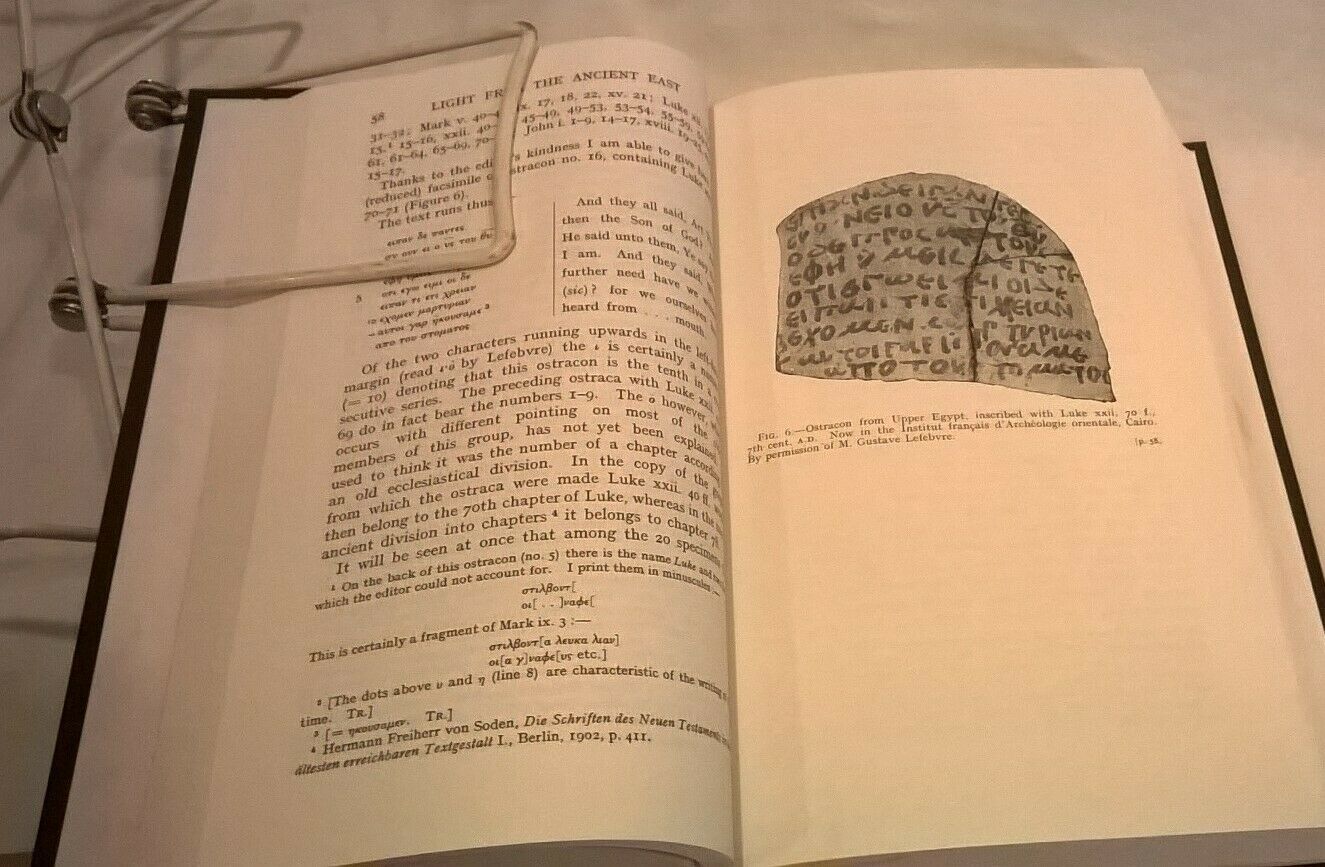 58 LIGHT FR THE ANCIENT EAST
31–32; Mark v. 40– ix. 17, 18, 22, xv. 21; Luke
15,¹ 15–16, xxii. 40– 45–49, 49–53, 53–54, 55–59,
61, 61–64, 65–69, 70– John i. 1–9, 14–17, xviii. 19–
15–17.
Thanks to the edi 's kindness I am able to give
(reduced) facsimile o stracon no. 16, containing Luke
70–71 (Figure 6).
The text runs thus
ειπαν δε παντες
συ ουν ει ο υς του θυ
οτι εγω ειμι οι δε
5 ειπαν τι ετι χρειαν
ιο εχομεν μαρτυριαν
αυτοι γαρ ηκουσαμε ³
απο του στοματος
And they all said, Art
then the Son of God?
He said unto them, Ye say
I am. And they said,
further need have we
(sic)? for we ourselves
heard from . . . mouth
Of the two characters running upwards in the left
margin (read by Lefebvre) the ι is certainly a
(= 10) denoting that this ostracon is the tenth in a
secutive series. The preceding ostraca with Luke xxii.
69 do in fact bear the numbers 1–9. The o however,
occurs with different pointing on most of the
members of this group, has not yet been explained.
used to think it was the number of a chapter accord
an old ecclesiastical division. In the copy of the
from which the ostraca were made Luke xxii. 40 ff.
then belong to the 70th chapter of Luke, whereas in the
ancient division into chapters ⁴ it belongs to chapter 78.
It will be seen at once that among the 20 specimens
¹ On the back of this ostracon (no. 5) there is the name Luke and
which the editor could not account for. I print them in minuscules:—
στιλβοντ[
οι[ . . ]ναφε[
This is certainly a fragment of Mark ix. 3 :—
στιλβοντ[α λευκα λιαν]
οι[α γ]ναφε[υς etc.]
² [The dots above υ and η (line 8) are characteristic of the writing
time. TR.]
³ [= ηκουσαμεν. TR.]
⁴ Hermann Freiherr von Soden, Die Schriften des Neuen Testaments
ältesten erreichbaren Textgestalt I., Berlin, 1902, p. 411.
FIG. 6.—Ostracon from Upper Egypt, inscribed with Luke xxii. 70 f.,
7th cent. A.D. Now in the Institut français d'Archéologie orientale, Cairo.
By permission of M. Gustave Lefebvre.
[p. 58.